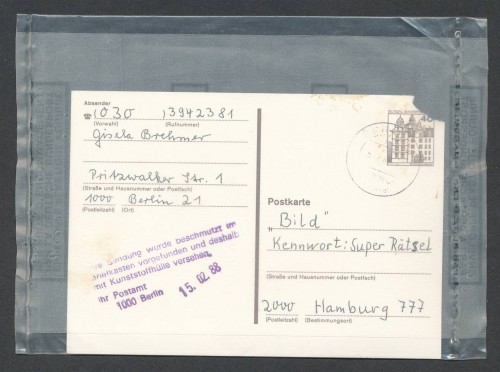 Absender
☎ (030 ) 3942381
(Vorwahl) (Rufnummer)
Gisela Brehmer
Pritzwalker Str. 1
(Straße und Hausnummer oder Postfach)
1000 Berlin 21
(Postleitzahl) (Ort)
Sendung wurde beschmutzt im
Briefkasten vorgefunden und deshalb
mit Kunststoffhülle versehen.
Ihr Postamt
1000 Berlin 15. 02. 88
Postkarte
"Bild"
Kennwort: Super Rätsel
(Straße und Hausnummer oder Postfach)
2000 Hamburg 777
(Postleitzahl) (Bestimmungsort)